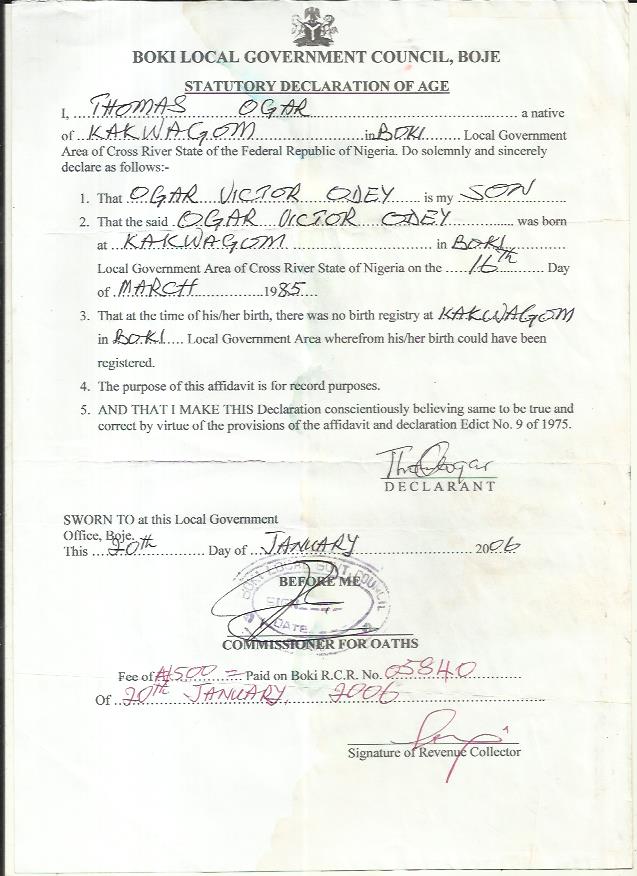 BOKI LOCAL GOVERNMENT COUNCIL, BOJE
STATUTORY DECLARATION OF AGE
I, THOMAS OGAR a native
of KAKWAGOM in BOKI Local Government
Area of Cross River State of the Federal Republic of Nigeria. Do solemnly and sincerely
declare as follows:-
1. That OGAR VICTOR ODEY is my SON
2. That the said OGAR VICTOR ODEY was born
at KAKWAGOM in BOKI
Local Government Area of Cross River State of Nigeria on the 16th Day
of MARCH 1985
3. That at the time of his/her birth, there was no birth registry at KAKWAGOM
in BOKI Local Government Area wherefrom his/her birth could have been
registered.
4. The purpose of this affidavit is for record purposes.
5. AND THAT I MAKE THIS Declaration conscientiously believing same to be true and
correct by virtue of the provisions of the affidavit and declaration Edict No. 9 of 1975.
DECLARANT
SWORN TO at this Local Government
Office, Boje.
This 20th Day of JANUARY 2006
BOKI LOCAL GOVT. COUNCIL
BEFORE ME
SIGN
DATE
COMMISSIONER FOR OATHS
Fee of ₦500 = Paid on Boki R.C.R. No. 05840
Of 20TH JANUARY, 2006
Signature of Revenue Collector